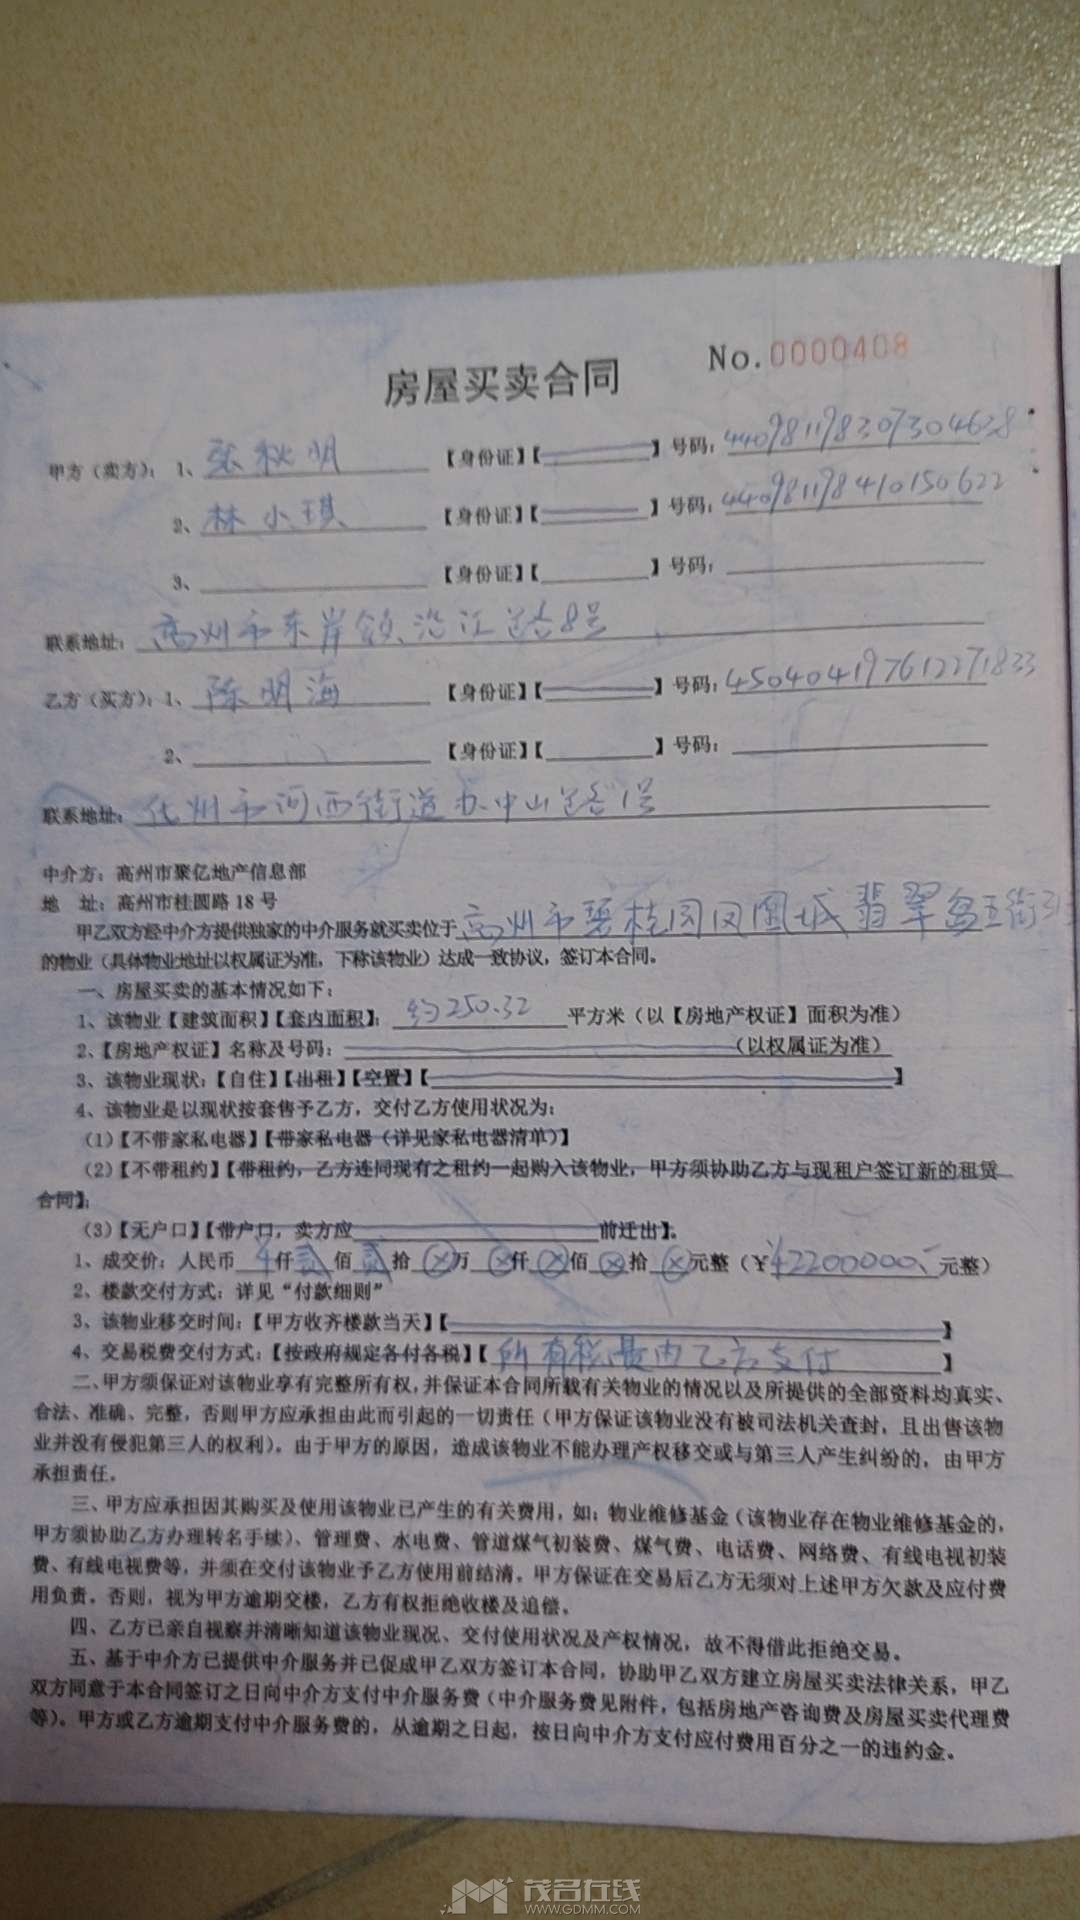 No.0000408
房屋买卖合同
甲方（卖方）：1、张秋明【身份证】【】号码：440981198307304638
2、林小琪【身份证】【】号码：440981198410150622
3、【身份证】【】号码：
联系地址：高州市东岸镇沿江路8号
乙方（买方）：1、陈明海【身份证】【】号码：450404197612271833
2、【身份证】【】号码：
联系地址：化州市河西街道办中山路1号
中介方：高州市聚亿地产信息部
地 址：高州市桂圆路18号
甲乙双方经中介方提供独家的中介服务就买卖位于高州市碧桂园凤凰城翡翠岛五街
的物业（具体物业地址以权属证为准，下称该物业）达成一致协议，签订本合同。
一、房屋买卖的基本情况如下：
1、该物业【建筑面积】【套内面积】：约250.32平方米（以【房地产权证】面积为准）
2、【房地产权证】名称及号码：（以权属证为准）
3、该物业现状：【自住】【出租】【空置】【】
4、该物业是以现状按套售予乙方，交付乙方使用状况为：
（1）【不带家私电器】【带家私电器（详见家私电器清单）】
（2）【不带租约】【带租约，乙方连同现有之租约一起购入该物业，甲方须协助乙方与现租户签订新的租赁
合同】；
（3）【无户口】【带户口，卖方应前迁出】。
1、成交价：人民币仟贰佰贰拾万仟佰拾元整（¥2200000.元整）
2、楼款交付方式：详见“付款细则”
3、该物业移交时间：【甲方收齐楼款当天】【】
4、交易税费交付方式：【按政府规定各付各税】【所有税费由乙方支付】
二、甲方须保证对该物业享有完整所有权，并保证本合同所载有关物业的情况以及所提供的全部资料均真实、
合法、准确、完整，否则甲方应承担由此而引起的一切责任（甲方保证该物业没有被司法机关查封，且出售该物
业并没有侵犯第三人的权利）。由于甲方的原因，造成该物业不能办理产权移交或与第三人产生纠纷的，由甲方
承担责任。
三、甲方应承担因其购买及使用该物业已产生的有关费用，如：物业维修基金（该物业存在物业维修基金的，
甲方须协助乙方办理转名手续）、管理费、水电费、管道煤气初装费、煤气费、电话费、网络费、有线电视初装
费、有线电视费等，并须在交付该物业予乙方使用前结清。甲方保证在交易后乙方无须对上述甲方欠款及应付费
用负责。否则，视为甲方逾期交楼，乙方有权拒绝收楼及追偿。
四、乙方已亲自视察并清晰知道该物业现况、交付使用状况及产权情况，故不得借此拒绝交易。
五、基于中介方已提供中介服务并已促成甲乙双方签订本合同，协助甲乙双方建立房屋买卖法律关系，甲乙
双方同意于本合同签订之日向中介方支付中介服务费（中介服务费见附件，包括房地产咨询费及房屋买卖代理费
等）。甲方或乙方逾期支付中介服务费的，从逾期之日起，按日向中介方支付应付费用百分之一的违约金。
茂名在线
WWW.GDMM.COM